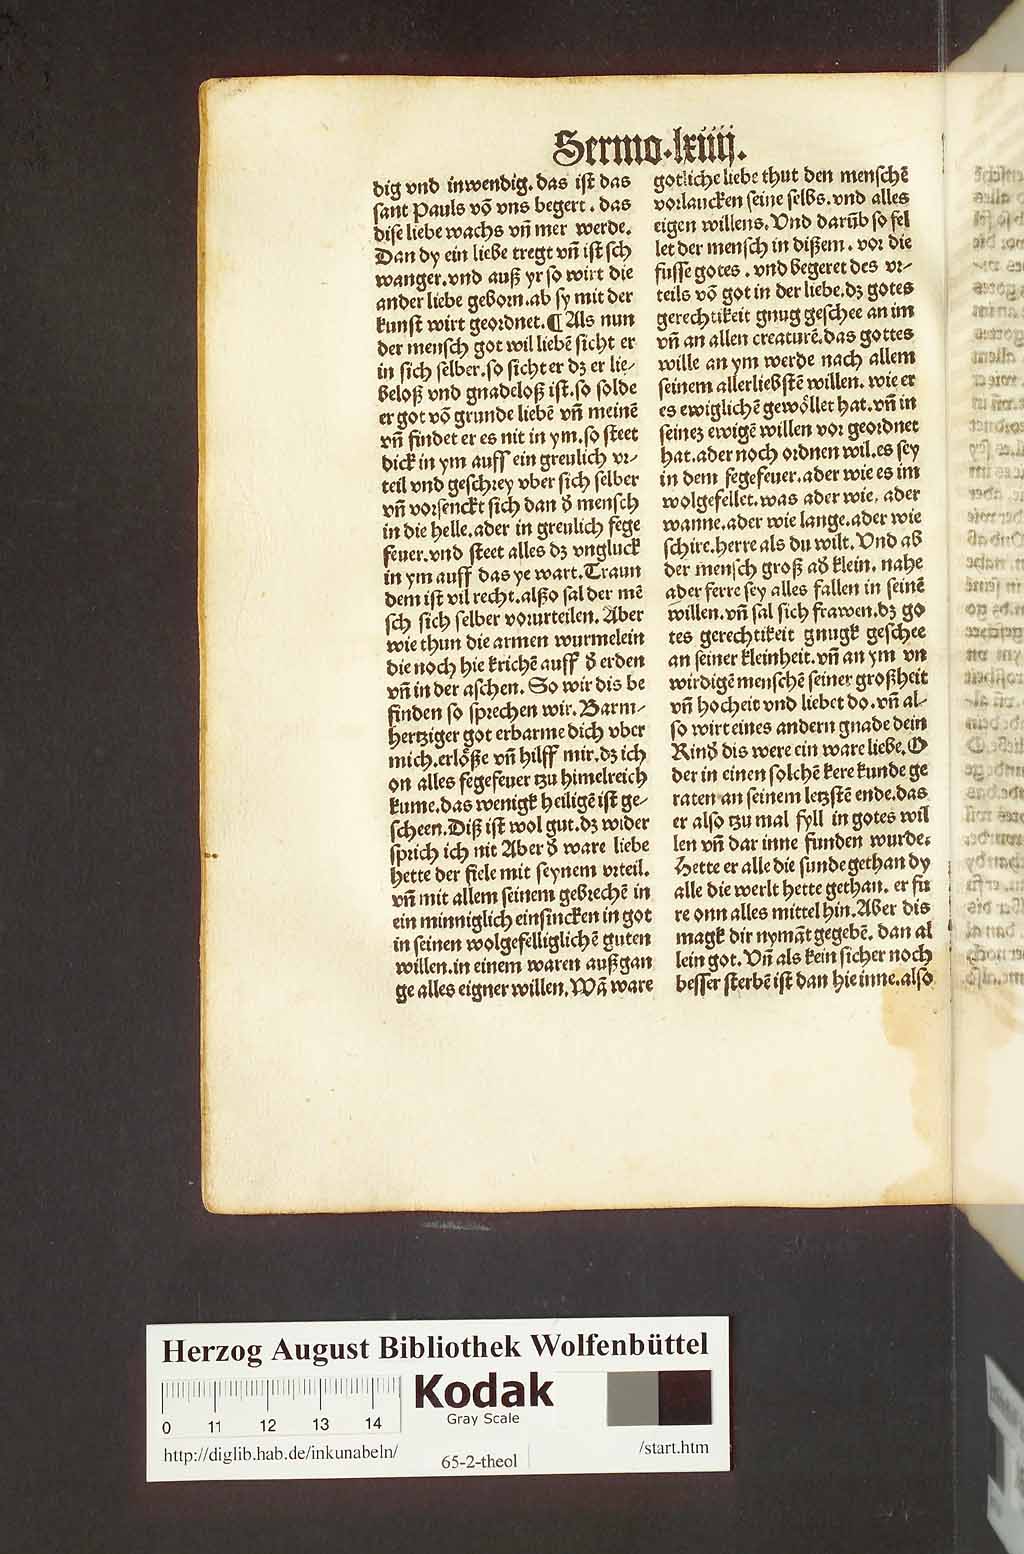 Sermo.lxiiij.
dig vnd inwendig. das ist das
sant Pauls võ vns begert. das
dise liebe wachs vñ mer werde.
Dan dy ein liebe tregt vñ ist sch
wanger. vnd auß yr so wirt die
ander liebe geborn. ab sy mit der
kunst wirt geordnet. ¶ Als nun
der mensch got wil liebẽ sicht er
in sich selber. so sicht er dz er lie⸗
beloß vnd gnadeloß ist. so solde
er got võ grunde liebẽ vñ meinẽ
vñ findet er es nit in ym. so steet
dick in ym auff ein greulich vr⸗
teil vnd geschrey vber sich selber
vñ vorsenckt sich dan ď mensch
in die helle. ader in greulich fege
feuer. vnd steet alles dz vngluck
in ym auff das ye wart. Traun
dem ist vil recht. alßo sal der mẽ
sch sich selber vorurteilen. Aber
wie thun die armen wurmelein
die noch hie krichẽ auff ď erden
vñ in der aschen. So wir dis be
finden so sprechen wir. Barm⸗
hertziger got erbarme dich vber
mich. erlőße vñ hilff mir. dz ich
on alles fegefeuer tzu himelreich
kume. das wenigk heiligẽ ist ge⸗
scheen. Diß ist wol gut. dz wider
sprich ich nit Aber ď ware liebe
hette der fiele mit seynem vrteil.
vñ mit allem seinem gebrechẽ in
ein minniglich einsincken in got
in seinen wolgefelliglichẽ guten
willen. in einem waren außgan
ge alles eigner willen. Wã ware
gotliche liebe thut den menschẽ
vorlaucken seine selbs. vnd alles
eigen willens. Vnd darũb so fel
let der mensch in dißem. vor die
fusse gotes. vnd begeret des vr⸗
teils võ got in der liebe. dz gotes
gerechtikeit gnug geschee an im
vñ an allen creaturẽ. das gottes
wille an ym werde nach allem
seinem allerliebstẽ willen. wie er
es ewiglichẽ gewőllet hat. vñ in
seinez ewigẽ willen vor geordnet
hat. ader noch ordnen wil. es sey
in dem fegefeuer. ader wie es im
wolgefellet. was ader wie, ader
wanne. ader wie lange. ader wie
schire. herre als du wilt. Vnd ab
der mensch groß ad klein. nahe
ader ferre sey alles fallen in seinẽ
willen. vñ sal sich frawen. dz go
tes gerechtikeit gnugk geschee
an seiner kleinheit. vñ an ym vn
wirdigẽ menschẽ seiner großheit
vñ hocheit vnd liebet do. vñ al⸗
so wirt eines andern gnade dein
Kinď dis were ein ware liebe. O
der in einen solchẽ kere kunde ge
raten an seinem letzstẽ ende. das
er also tzu mal fyll in gotes wil
len vñ dar inne funden wurde.
Hette er alle die sunde gethan dy
alle die werlt hette gethan. er fu
re onn alles mittel hin. Aber dis
magk dir nymãt gegebẽ. dan al
lein got. Vñ als kein sicher noch
besser sterbẽ ist dan hie inne. also
Herzog August Bibliothek Wolfenbüttel
Kodak
Gray Scale
0 11 12 13 14
http://diglib.hab.de/inkunabeln/
65-2-theol
/start.htm